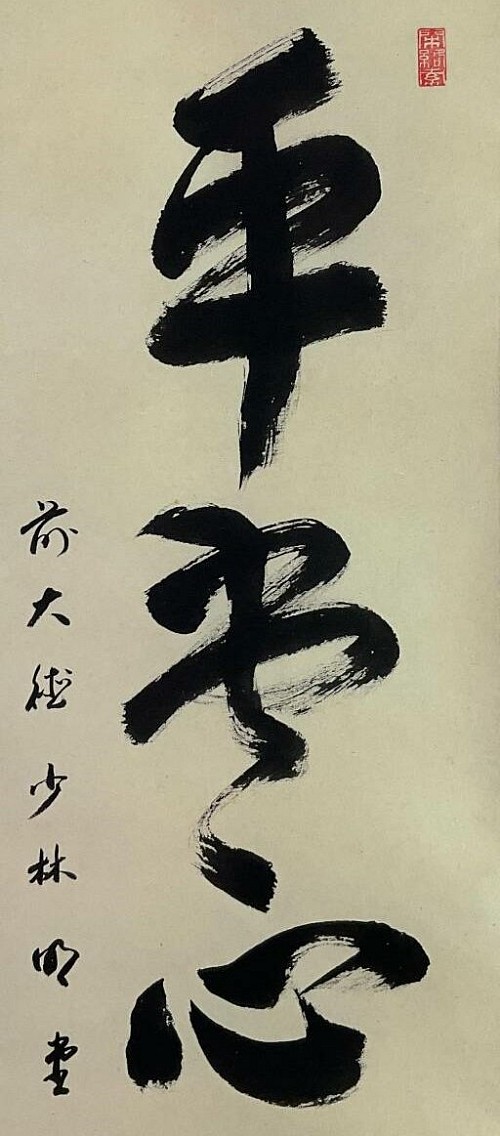 平常心
前大徳少林明堂